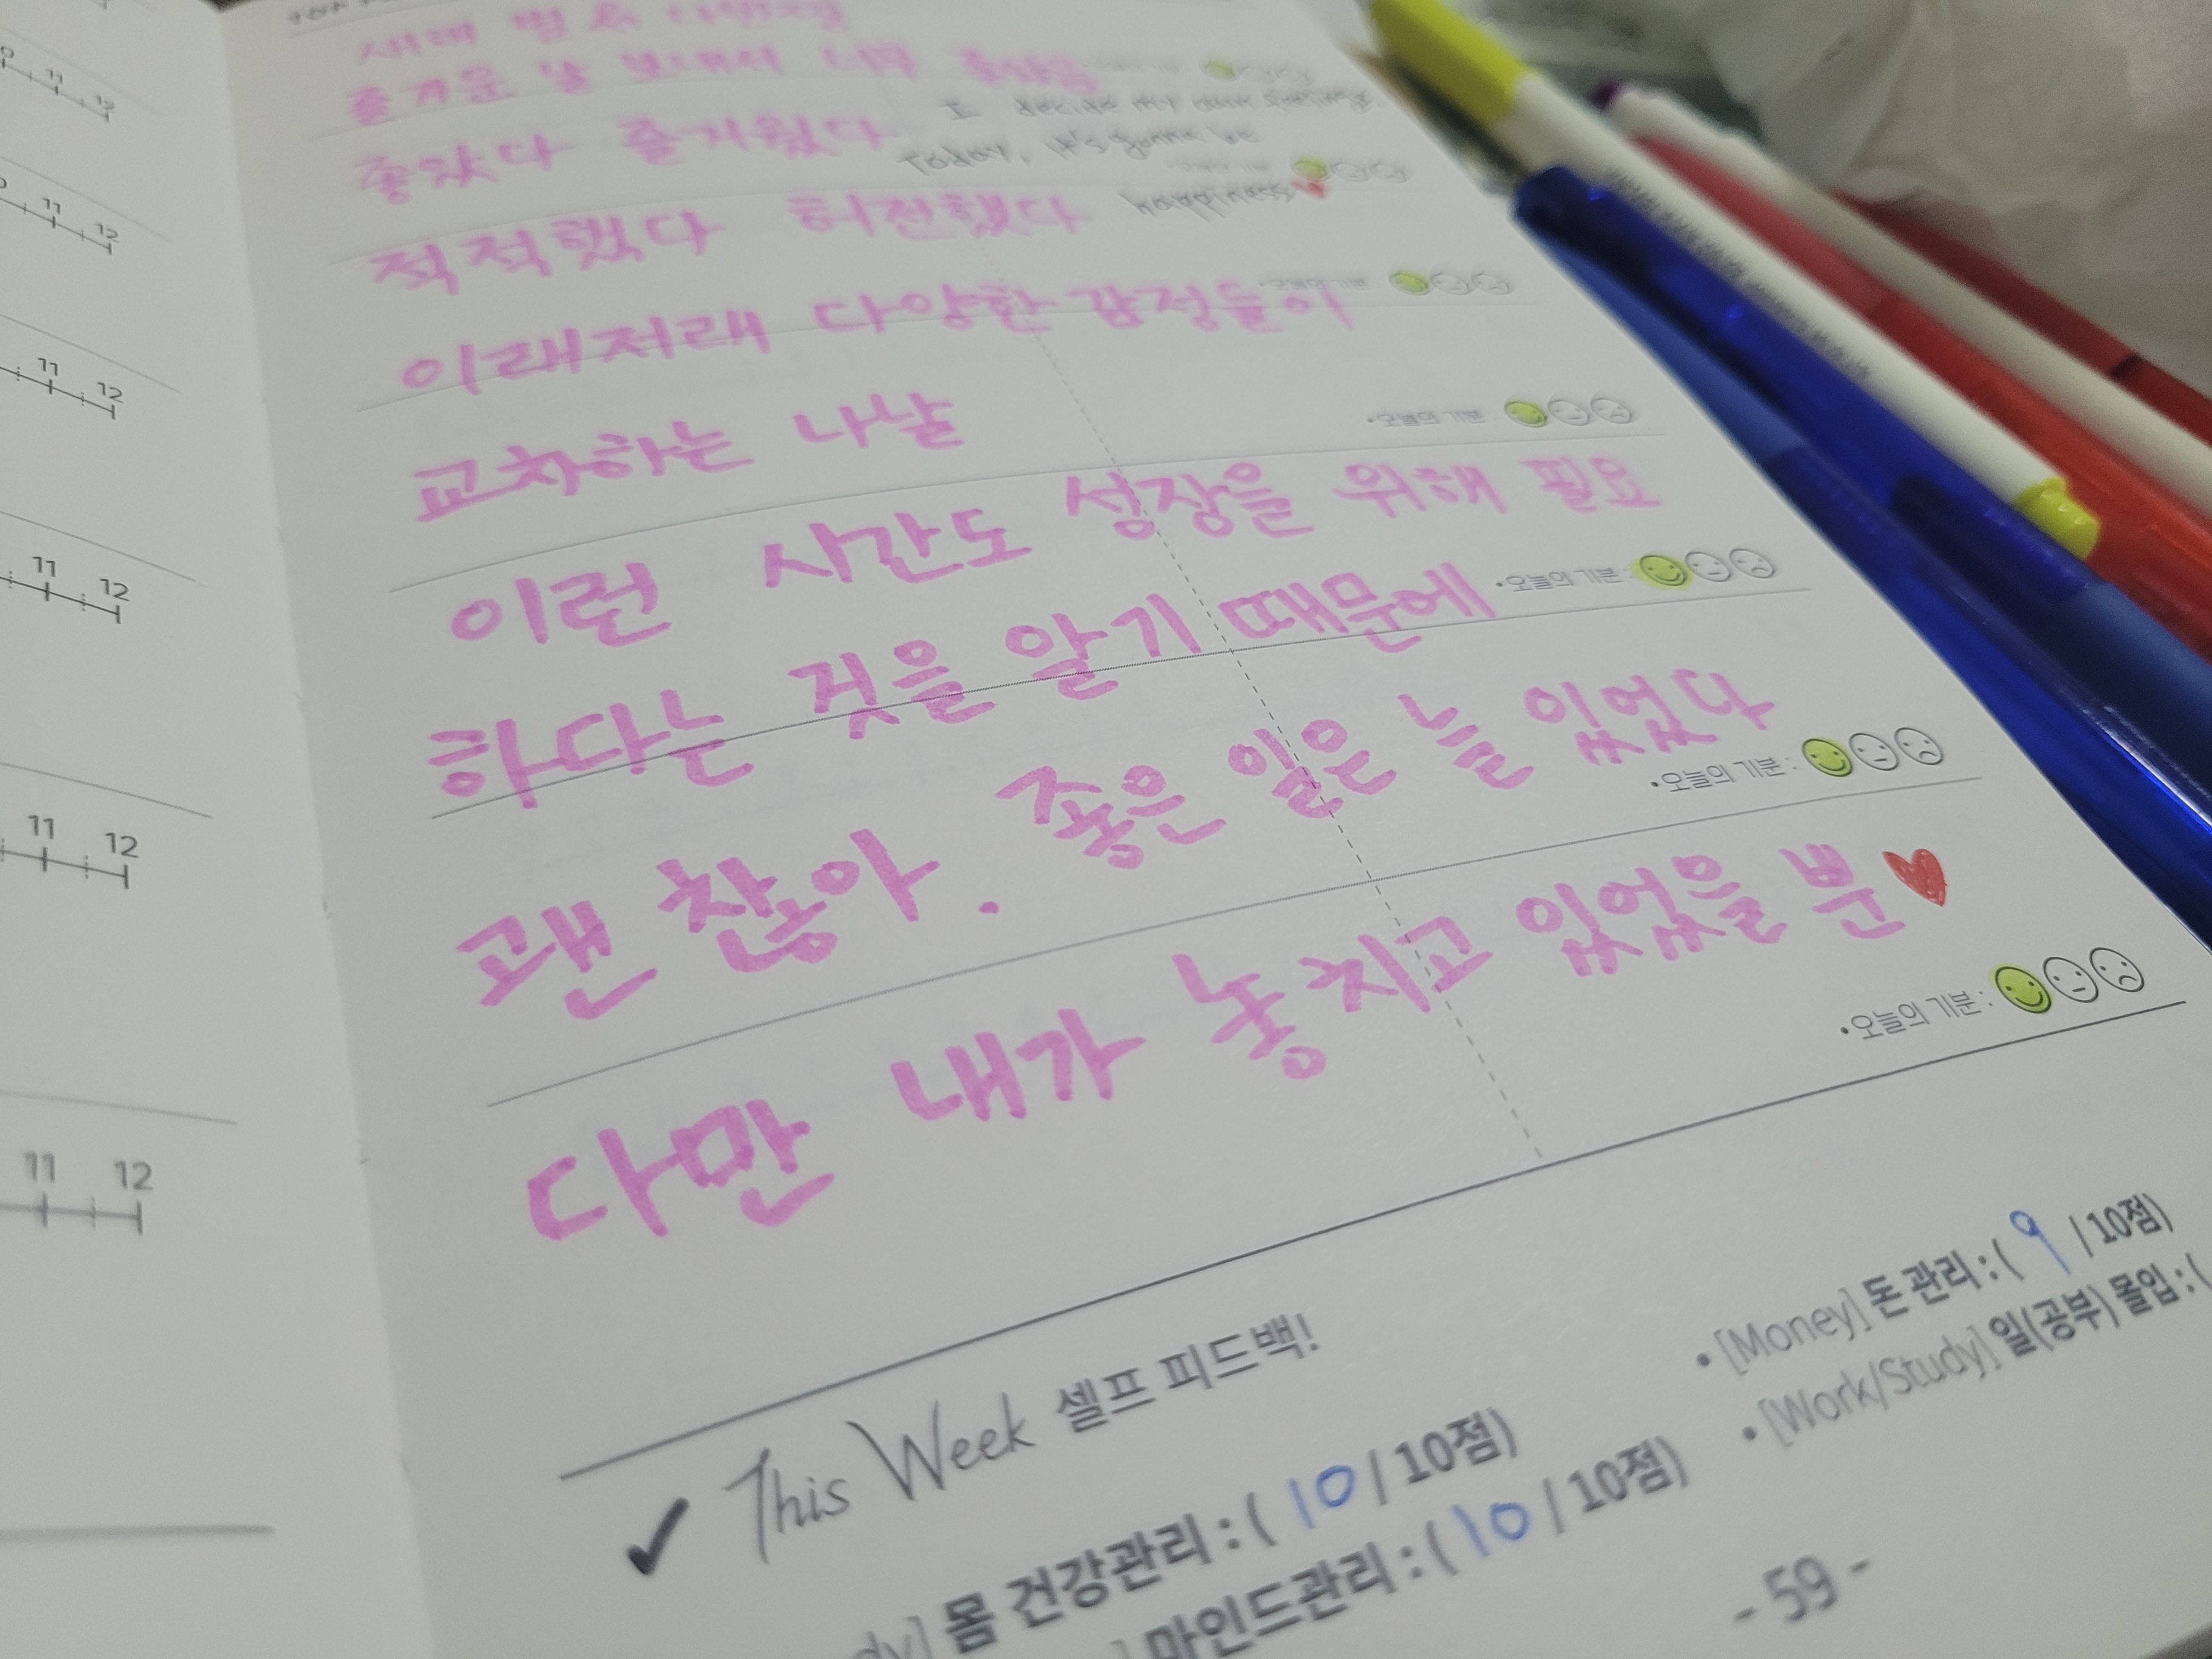 즐거운 날 보내서 너무 좋았음
I decide my own feelings.
좋았다 즐거웠다
Today, it's gonna be
적적했다 허전했다
happiness
이래저래 다양한 감정들이
교차하는 나날
•오늘의 기분 :
이런 시간도 성장을 위해 필요
•오늘의 기분 :
하다는 것을 알기 때문에
괜찮아. 좋은 일은 늘 있었다
•오늘의 기분 :
다만 내가 놓치고 있었을 뿐
•오늘의 기분 :
✔ This Week 셀프 피드백!
dy] 몸 건강관리 : ( 10 / 10점)
• [Money] 돈 관리 : ( 9 / 10점)
] 마인드관리 : ( 10 / 10점)
• [Work/Study] 일(공부) 몰입 : (
- 59 -
11 12
11 12
11 12
11 12
11 12
11 12